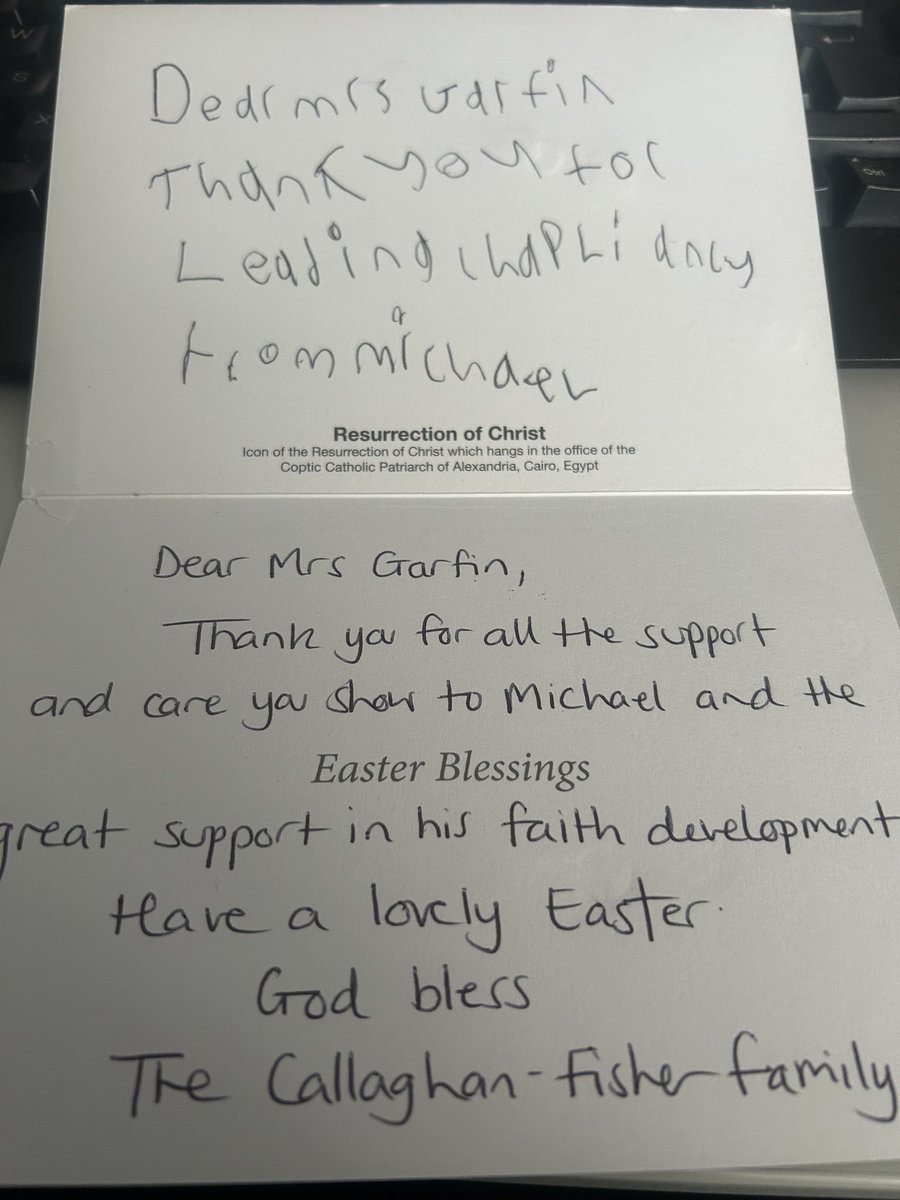 Dear mrs Garfin
Thank you for
Leading chapli ancy
from michael
Resurrection of Christ
Icon of the Resurrection of Christ which hangs in the office of the
Coptic Catholic Patriarch of Alexandria, Cairo, Egypt
Dear Mrs Garfin,
Thank you for all the support
and care you show to Michael and the
Easter Blessings
great support in his faith development
Have a lovely Easter.
God bless
The Callaghan-Fisher family